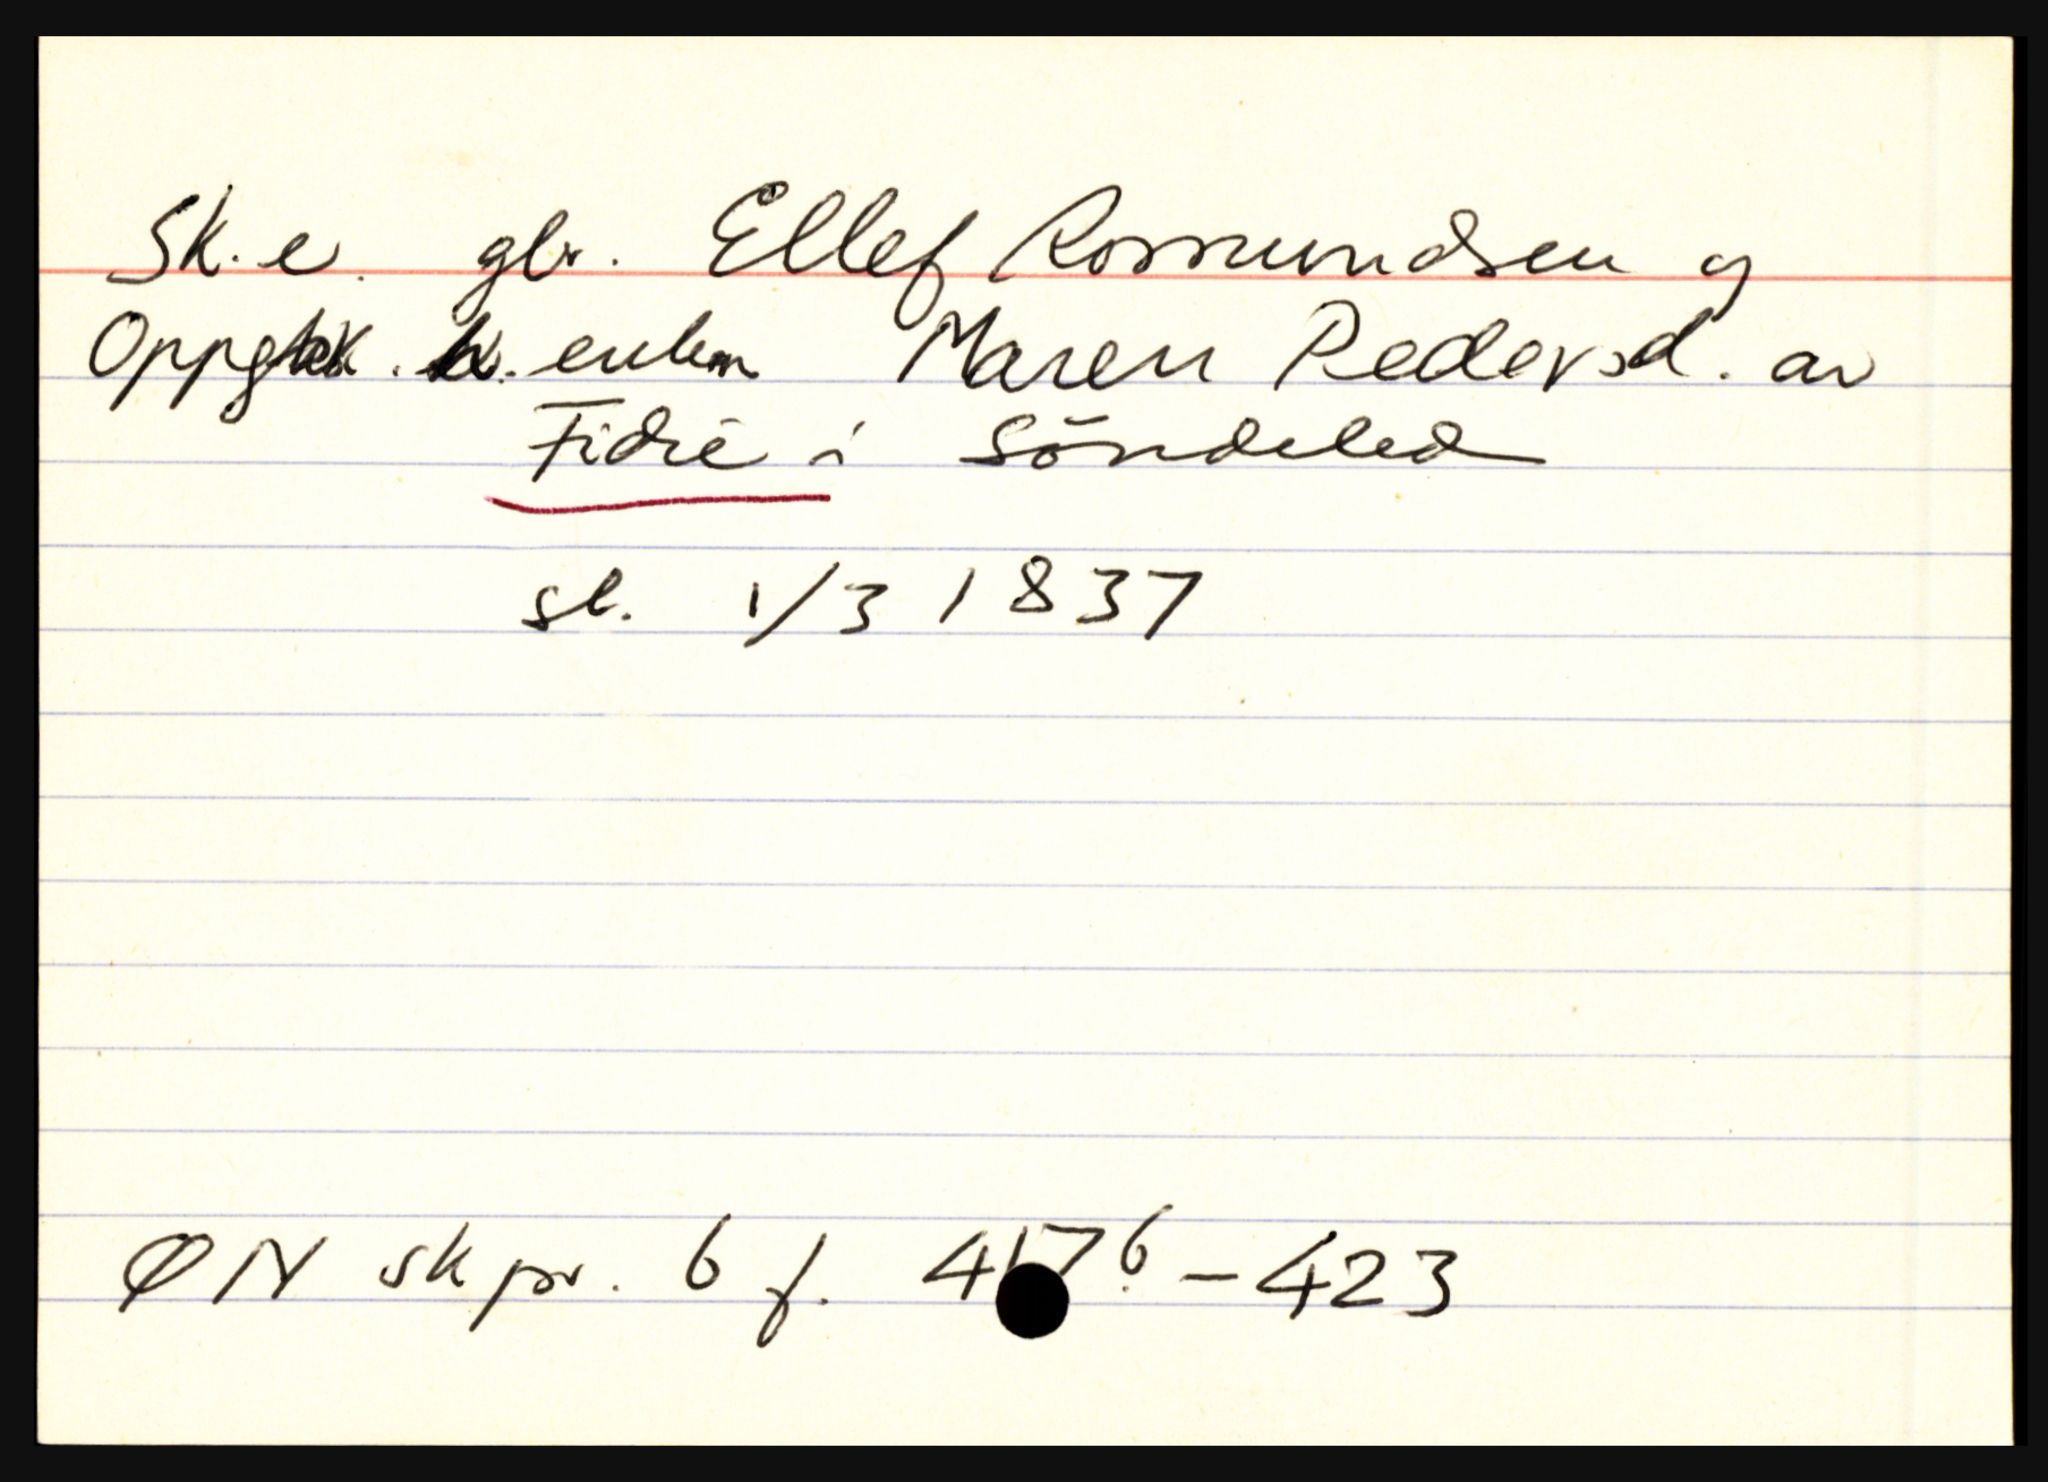 Sk. e. gbr. Ellef Rosmundsen og
Oppgbsk. enken Maren Pedersd. av
Fidie i Söndeled
sl. 1/3 1837
ØN skpr. 6 f. 417b-423